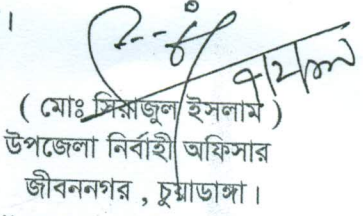 ।
( মোঃ সিরাজুল ইসলাম )
উপজেলা নির্বাহী অফিসার
জীবননগর , চুয়াডাঙ্গা ।